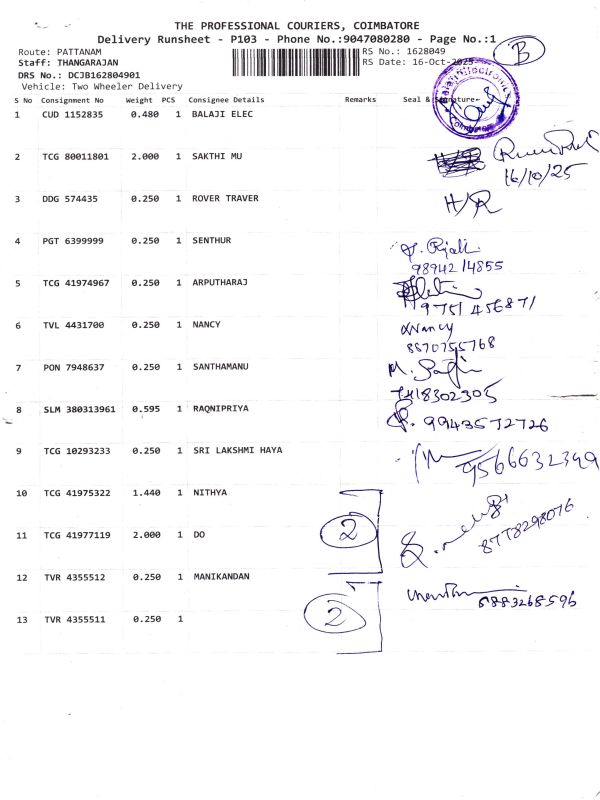 THE PROFESSIONAL COURIERS, COIMBATORE
Delivery Runsheet - P103 - Phone No.:9047080280 - Page No.:1
Route: PATTANAM RS No.: 1628049
Staff: THANGARAJAN RS Date: 16-Oct-2025
B
DRS No.: DCJB162804901
Vehicle: Two Wheeler Delivery
S No Consignment No Weight PCS Consignee Details Remarks Seal & Signature
1 CUD 1152835 0.480 1 BALAJI ELEC
2 TCG 80011801 2.000 1 SAKTHI MU
16/10/25
3 DDG 574435 0.250 1 ROVER TRAVER H/R
4 PGT 6399999 0.250 1 SENTHUR
98942 14855
5 TCG 41974967 0.250 1 ARPUTHARAJ
9751 456871
6 TVL 4431700 0.250 1 NANCY Nancy
8870755768
7 PON 7948637 0.250 1 SANTHAMANU
7418302305
8 SLM 380313961 0.595 1 RAQNIPRIYA 9943572726
9 TCG 10293233 0.250 1 SRI LAKSHMI HAYA 9566632399
10 TCG 41975322 1.440 1 NITHYA
2 8778298076
11 TCG 41977119 2.000 1 DO
12 TVR 4355512 0.250 1 MANIKANDAN
2 8883268596
13 TVR 4355511 0.250 1